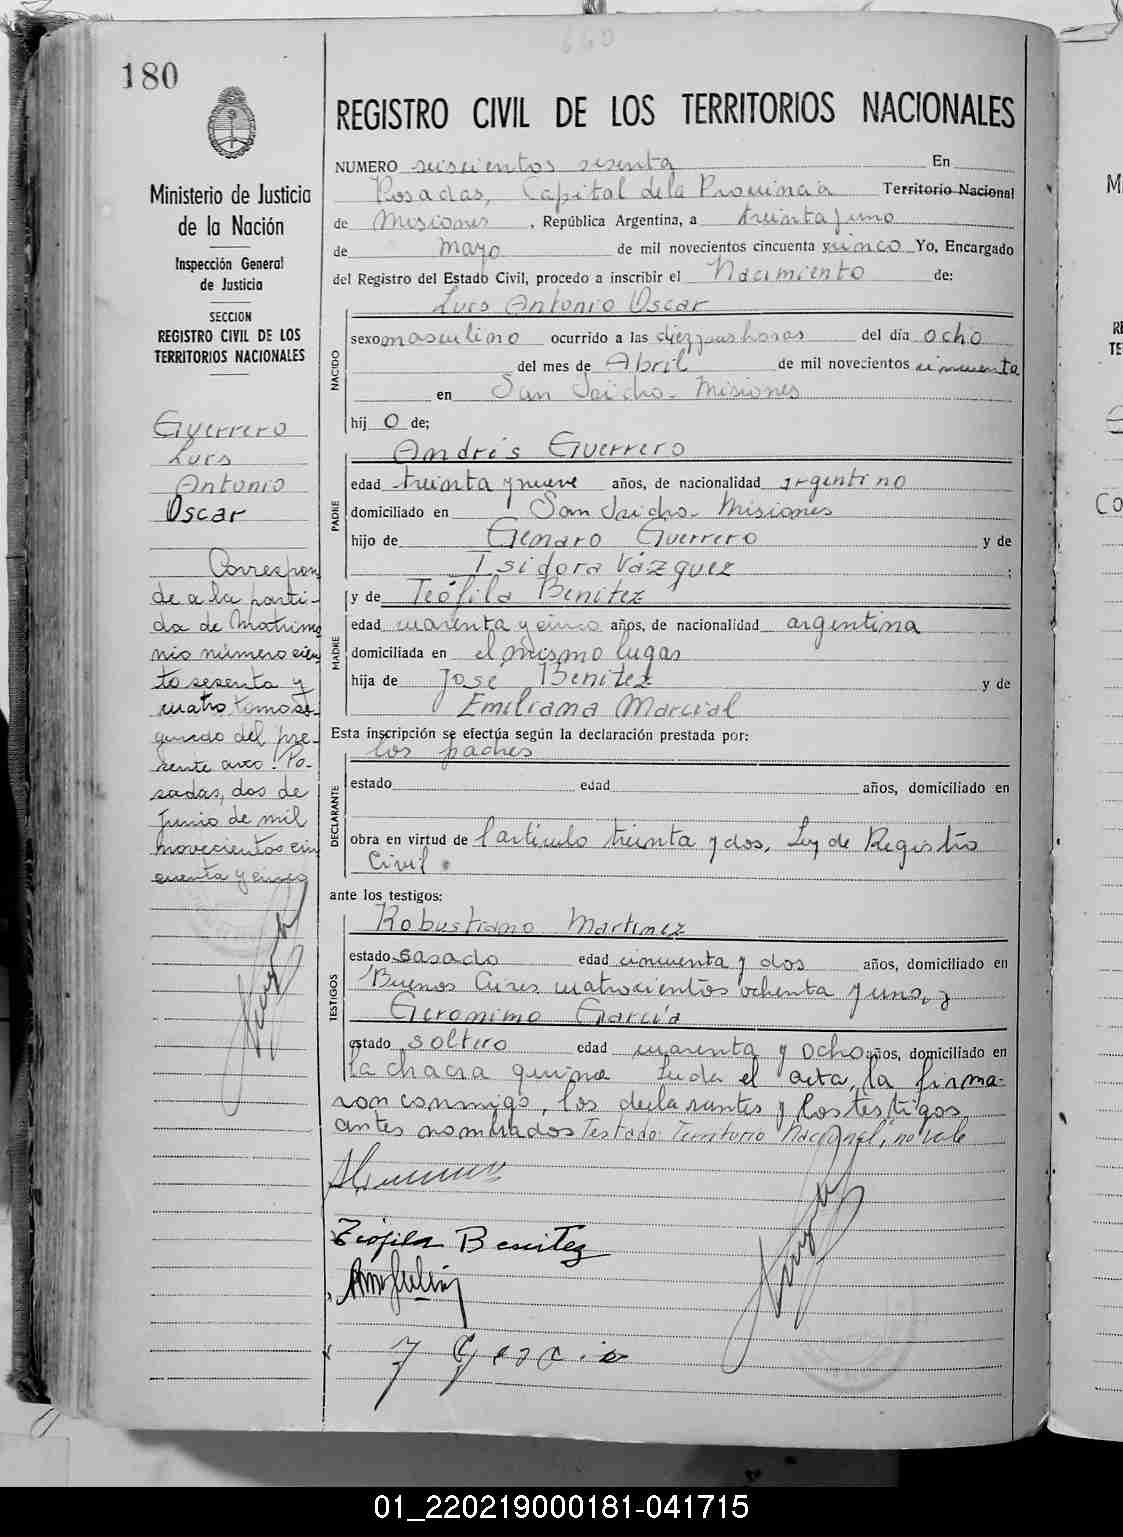 660
180
REGISTRO CIVIL DE LOS TERRITORIOS NACIONALES
Ministerio de Justicia
de la Nación
Inspección General
de Justicia
SECCION
REGISTRO CIVIL DE LOS
TERRITORIOS NACIONALES
Guerrero
Luis
Antonio
Oscar
Correspon
de a la parti-
da de Matrimo
nio número cien
to sesenta y
cuatro tomo se-
gundo del pre-
sente año. Po-
sadas, dos de
Junio de mil
novecientos cin
cuenta y cinco
NUMERO seiscientos sesenta En
Posadas, Capital de la Provincia Territorio Nacional
de Misiones, República Argentina, a treinta y uno
de mayo de mil novecientos cincuenta y cinco Yo, Encargado
del Registro del Estado Civil, procedo a inscribir el Nacimiento de:
Luis Antonio Oscar
NACIDO
sexo masculino ocurrido a las diez y seis horas del día ocho
del mes de Abril de mil novecientos cincuenta
en San Isidro - Misiones
hij o de;
Andrés Guerrero
PADRE
edad treinta y nueve años, de nacionalidad argentino
domiciliado en San Isidro - Misiones
hijo de Genaro Guerrero y de
Isidora Vázquez ;
y de Teófila Benítez
MADRE
edad cuarenta y cinco años, de nacionalidad argentina
domiciliada en el mismo lugar
hija de José Benítez y de
Emiliana Marcial
Esta inscripción se efectúa según la declaración prestada por:
los padres
DECLARANTE
estado edad años, domiciliado en
obra en virtud de l artículo treinta y dos, Ley de Registro
Civil.
ante los testigos:
Robustiano Martinez
TESTIGOS
estado casado edad cincuenta y dos años, domiciliado en
Buenos Aires cuatrocientos ochenta y uno, y
Gerónimo García
estado soltero edad cuarenta y ocho años, domiciliado en
la chacra quince Leída el acta, la firma-
ron conmigo, los declarantes y los testigos
antes nombrados Testado: Territorio Nacional, no vale
Teofila Benitez
J Garcia
01_220219000181-041715